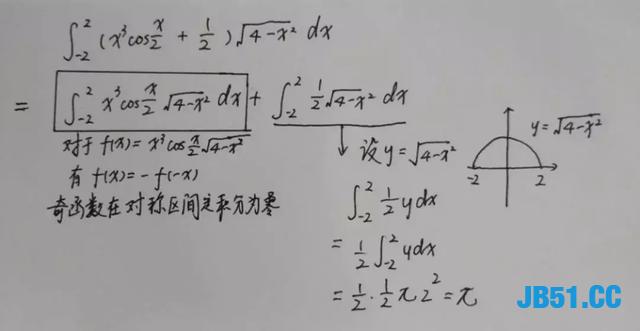 ∫₋₂² (x³cos x/2 + 1/2) √4-x² dx
= ∫₋₂² x³cos x/2 √4-x² dx + ∫₋₂² 1/2 √4-x² dx
对于 f(x) = x³cos x/2 √4-x²
有 f(x) = -f(-x)
奇函数在对称区间定积分为零
设 y = √4-x²
∫₋₂² 1/2 y dx
= 1/2 ∫₋₂² y dx
= 1/2 · 1/2 π 2² = π
y = √4-x²
-2 2
JB51.CC